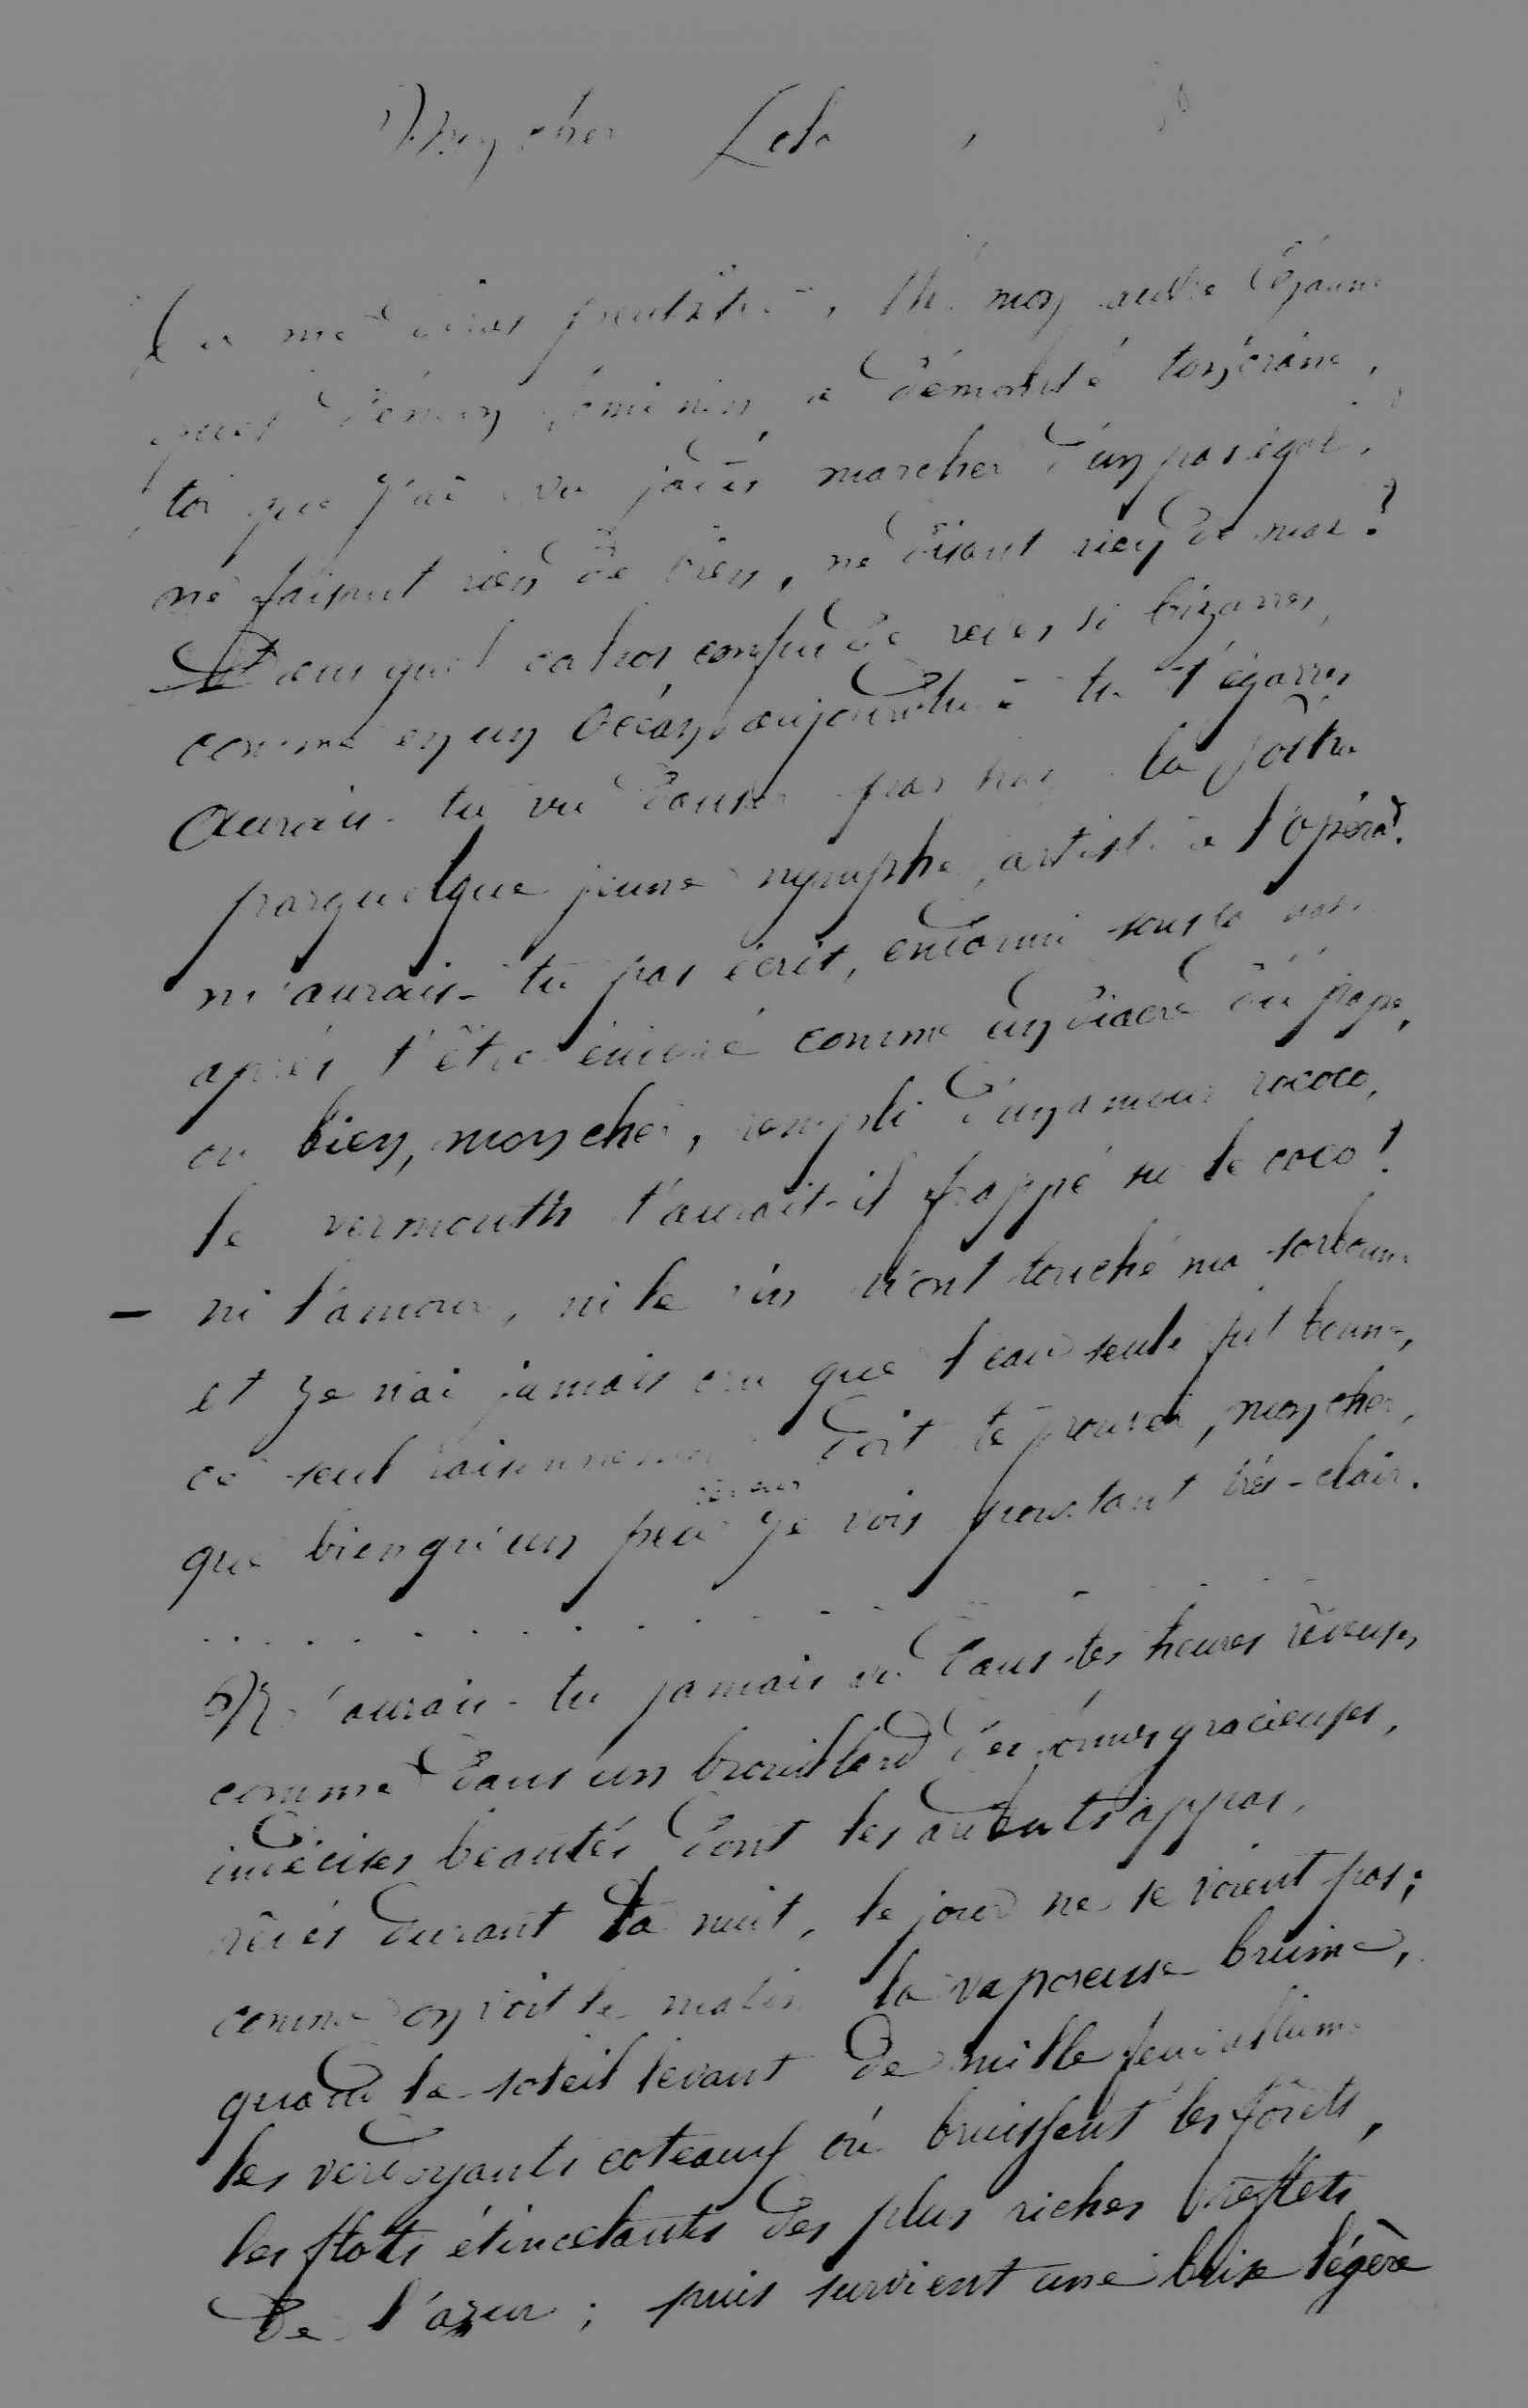 Mon cher Lolo,
Tu me diras peut-être, Ah! mon audre
quel démon féminin a démonté ton crâne,
toi que j'ai vu jadis marcher d'un pas égal,
ne faisant rien de bien, ne disant rien de mal?
Dans quel cahos confus de rêves si bizarres,
comme en un Océan, aujourd'hui tu t'égarres
Aurais-tu vu danser par la
par quelque jeune nymphe, artiste à l'opéra?
m'aurais-tu pas écrit, endormi sous la
après t'être enivré comme un diacre du pape,
ou bien, mon cher, rempli d'un amour rococo,
le vermouth t'aurait-il frappé sur le coco!
— ni l'amour, ni le vin n'ont touché ma sorbonne
et je n'ai jamais cru que l'eau seule fut bonne,
ce seul raisonnement doit te prouver, mon cher,
que bien qu'un peu rêveur je vois pourtant très-clair.
. . . . . . . . . . . . . . .
N'aurais-tu jamais vu dans tes heures rêveuses
comme dans un brouillard des formes gracieuses,
indécises beautés dont les ardents appas,
rêvés durant la nuit, le jour ne se voient pas;
comme on voit le matin la vaporeuse brume,
quand le soleil levant de mille feux allume
les verdoyants coteaux où bruissent les forêts,
les flots étincelants des plus riches reflets
de l'azur; puis survient une brise légère